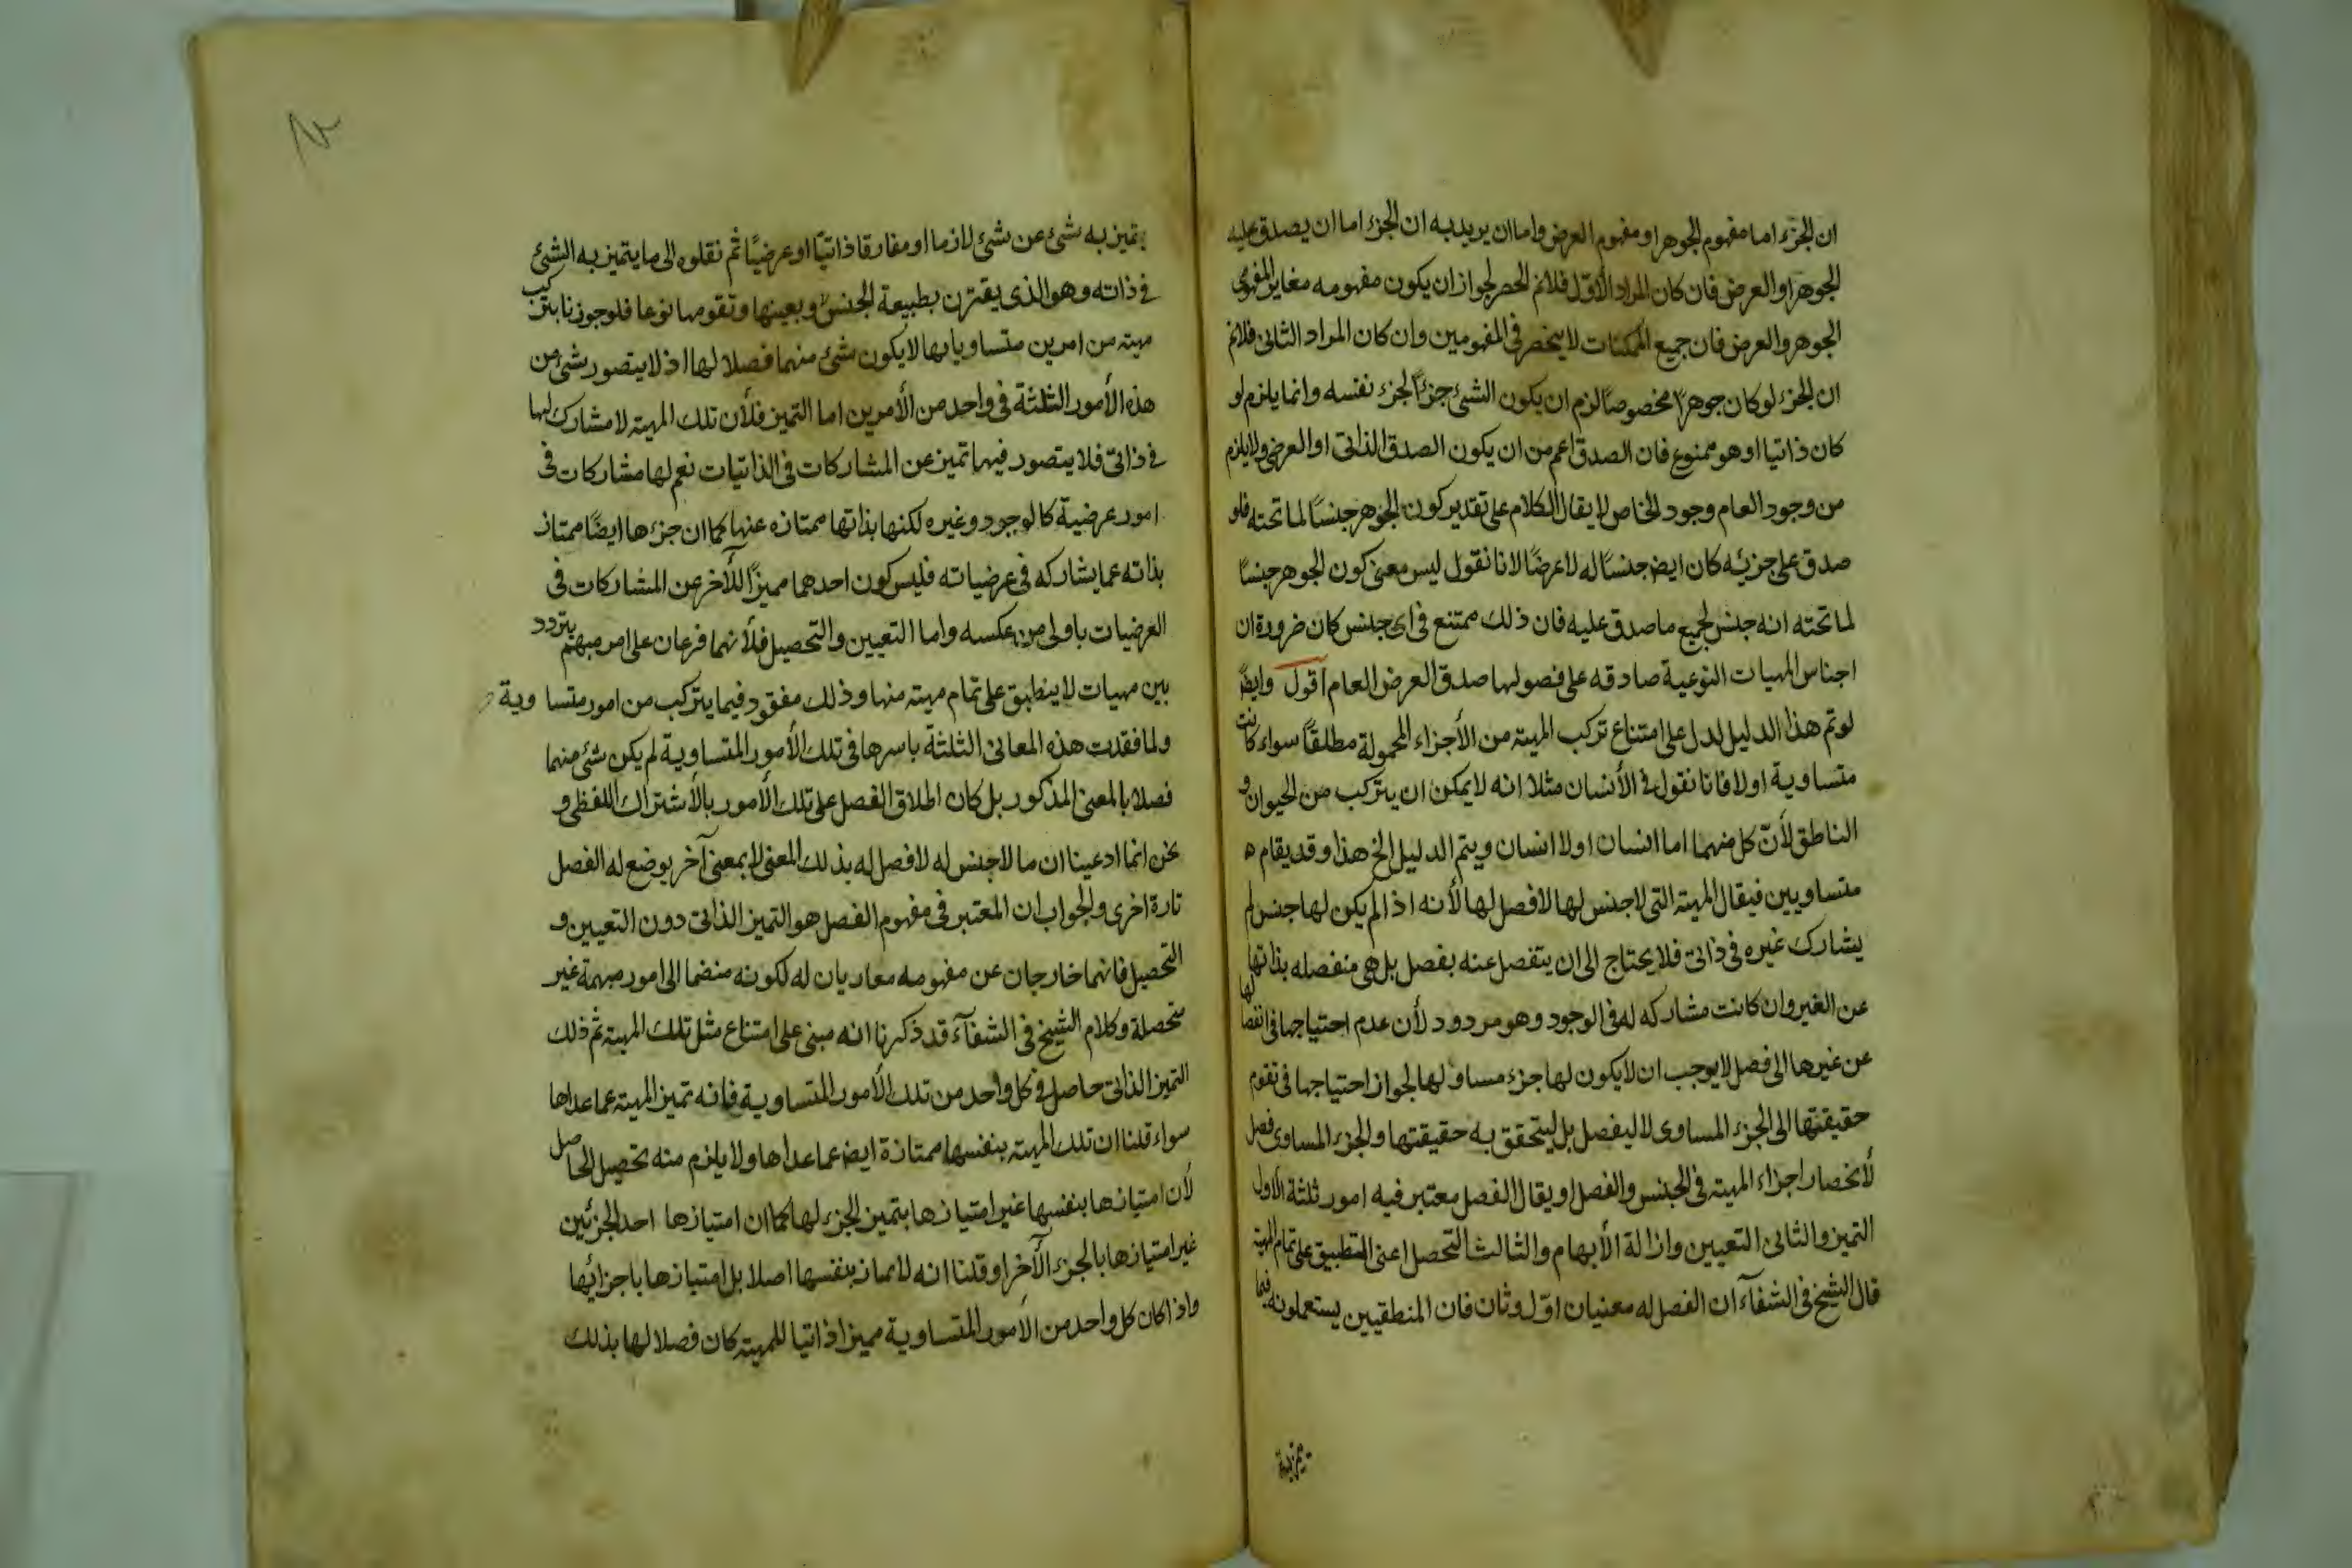 ان الجزء اما مفهوم الجوهر او مفهوم العرض واما ان يريد به ان الجزء اما ان يصدق عليه
الجوهر او العرض فان كان المراد الاوّل فلانم الحصر لجواز ان يكون مفهومه مغاير المفهومى
الجوهر والعرض فان جميع الممكنات لا ينحصر فى المفهومين وان كان المراد الثانى فلانم
ان الجزء لو كان جوهرًا مخصوصًا لزم ان يكون الشئ جزءًا لجزء نفسه وانما يلزم لو
كان ذاتيا او هو ممنوع فان الصدق اعم من ان يكون الصدق الذاتى او العرضى ولا يلزم
من وجود العام وجود الخاص لا يقال الكلام على تقدير كون الجوهر جنسًا لما تحته فلو
صدق على جزئه كان ايض جنسًا له لا عرضًا لانا نقول ليس معنى كون الجوهر جنسًا
لما تحته انه جنس لجميع ما صدق عليه فان ذلك ممتنع فى اى جنس كان ضرورة ان
اجناس المهيات النوعية صادقه على فصولها صدق العرض العام اقول وايضًا
لو تم هذا الدليل لدل على امتناع تركب المهيته من الأجزاء المحمولة مطلقًا سواء كانت
متساوية اولا فانا نقول فى الأنسان مثلا انه لا يمكن ان يتركب من الحيوان و
الناطق لأنّ كل منهما اما انسان او لا انسان ويتم الدليل الخ هذا وقد يقام ه
متساويين فيقال المهيته التى لا جنس لها لا فصل لها لأنه اذا لم يكن لها جنس لم
يشارك غيره فى ذاتى فلا يحتاج الى ان يتفصل عنه بفصل بل هى منفصله بذاتها
عن الغير وان كانت مشاركه له فى الوجود وهو مردود لأن عدم احتياجها فى انفصالها
عن غيرها الى فصل لا يوجب ان لا يكون لها جزء مساو لها لجواز احتياجها فى تقوم
حقيقتها الى الجزء المساوى لا ليفصل بل ليتحقق به حقيقتها والجزء المساوى فصل
لأنحصار اجزاء المهيته فى الجنس والفصل او يقال الفصل معتبر فيه امور ثلثة الاول
التميز والثانى التعيين وازالة الأبهام والثالث التحصل اعنى التطبيق على تمام المهيته
قال الشيخ فى الشفآء ان الفصل له معنيان اوّل وثان فان المنطقيين يستعملونه فيما
يتميز به
يتميز به شئ عن شئ لازما او مفارقا ذاتيّا او عرضيًّا ثم نقلوه الى ما يتميز به الشئ
فى ذاته وهو الذى يقترن بطبيعة الجنس وبعينها وتقومها نوعا فلو جوزنا تركب
مهيته من امرين متساويا بها لا يكون شئ منهما فصلا لها اذ لا يتصور شئ من
هذه الأمور الثلثة فى واحد من الأمرين اما التميز فلأن تلك المهيته لا مشارك لها
فى ذاتى فلا يتصور فيها تميز عن المشاركات فى الذاتيات نعم لها مشاركات فى
امور عرضية كالوجود وغيره لكنها بذاتها ممتازه عنها كما ان جزءها ايضًا ممتاز
بذاته عما يشاركه فى عرضياته فليس كون احدهما مميزًا للآخر عن المشاركات فى
العرضيات باولى من عكسه واما التعيين والتحصيل فلأنهما فرعان على امر مبهم يتردد
بين مهيات لا ينطبق على تمام مهيته منها وذلك مفقود فيما يتركب من امور متساوية
ولما فقدت هذه المعانى الثلثة باسرها فى تلك الأمور المتساوية لم يكن شئ منهما
فصلا بالمعنى المذكور بل كان اطلاق الفصل على تلك الأمور بالأشتراك اللفظى و
نحن انما ادعينا ان ما لا جنس له لا فصل له بذلك المعنى لا بمعنى آخر يوضع له الفصل
تارة اخرى والجواب ان المعتبر فى مفهوم الفصل هو التميز الذاتى دون التعيين و
التحصيل فانهما خارجان عن مفهومه معاريان له لكونه منضما الى امور مبهمة غير
متحصلة وكلام الشيخ فى الشفآء قد ذكرنا انه مبنى على امتناع مثل تلك المهيته ثم ذلك
التميز الذاتى حاصل فى كل واحد من تلك الأمور المتساوية فانه تميز المهيته عما عداها
سواء قلنا ان تلك المهيته بنفسها ممتازة ايض عما عداها ولا يلزم منه تحصيل الحاصل
لأن امتيازها بنفسها غير امتيازها بتميز الجزء لها كما ان امتيازها احد الجزئين
غير امتيازها بالجزء الآخر او قلنا انه لا تمتاز بنفسها اصلا بل امتيازها باجزائها
واذا كان كل واحد من الأمور المتساوية مميزا ذاتيا للمهيته كان فصلا لها بذلك